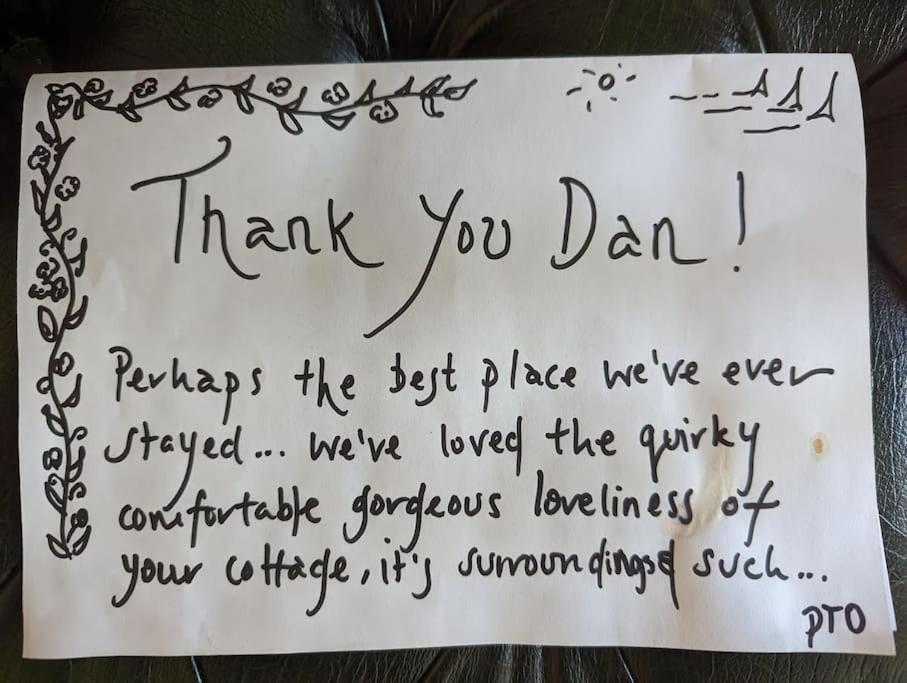 Thank you Dan!
Perhaps the best place we've ever
stayed... we've loved the quirky
comfortable gorgeous loveliness of
your cottage, it's surroundings & such...
PTO